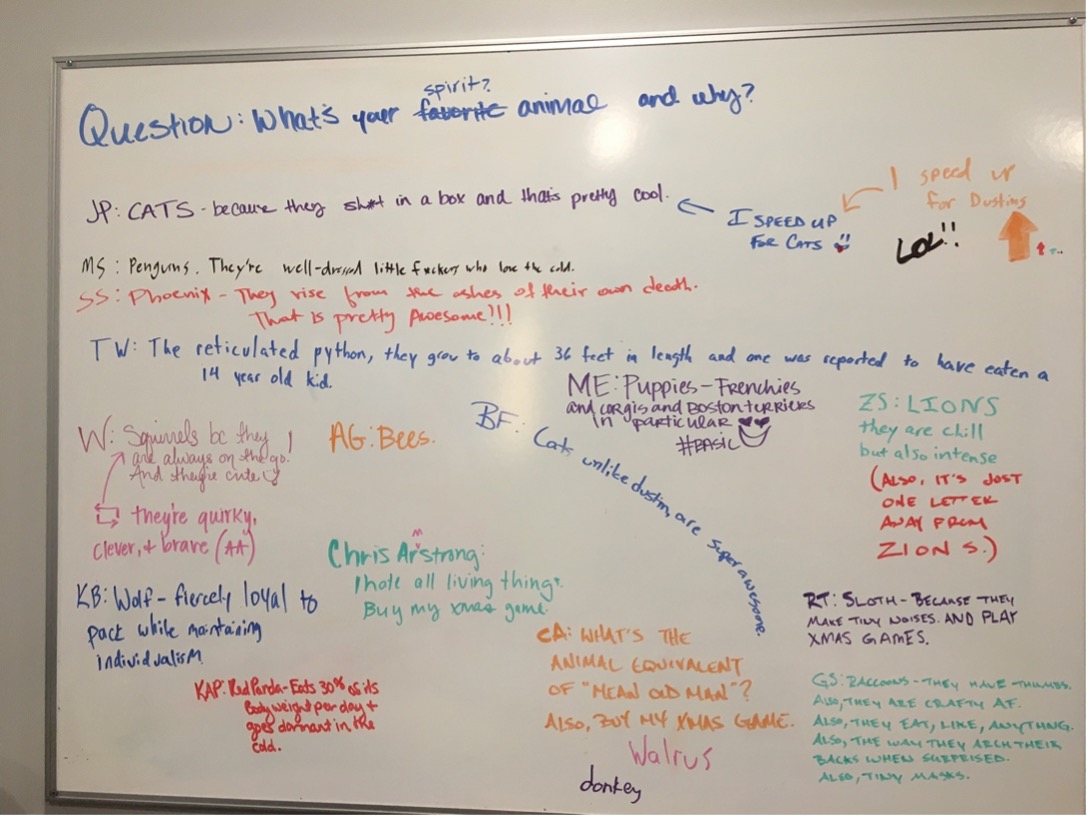 spirit?
Question: What's your favorite animal and why?
JP: CATS - because they sh*t in a box and that's pretty cool.
I SPEED UP
FOR CATS
I speed up
for Dustins
LOL!!
MS: Penguins. They're well-dressed little f*ckers who love the cold.
SS: Phoenix - They rise from the ashes of their own death.
That is pretty Awesome!!!
TW: The reticulated python, they grow to about 36 feet in length and one was reported to have eaten a
14 year old kid.
ME: Puppies - Frenchies
and corgis and Boston turriers
in particular
#BASIC
ZS: LIONS
they are chill
but also intense
(ALSO, IT'S JUST
ONE LETTER
AWAY FROM
ZION S.)
W: Squirrels bc they
are always on the go!
And they're cute
they're quirky,
clever, + brave (AA)
AG: Bees.
BF: Cats, unlike dustin, are super awesome.
m
Chris Arstrong:
I hate all living things.
Buy my xmas game.
KB: Wolf - fiercely loyal to
pack while maintaining
individualism
KAP: Red Panda - Eats 30% of its
Body weight per day +
goes dormant in the
cold.
CA: WHAT'S THE
ANIMAL EQUIVALENT
OF "MEAN OLD MAN"?
ALSO, BUY MY XMAS GAME.
Walrus
donkey
RT: SLOTH - BECAUSE THEY
MAKE TINY NOISES. AND PLAY
XMAS GAMES.
GS: RACCOONS - THEY HAVE THUMBS.
ALSO, THEY ARE CRAFTY AF.
ALSO, THEY EAT, LIKE, ANYTHING.
ALSO, THE WAY THEY ARCH THEIR
BACKS WHEN SURPRISED.
ALSO, TINY MASKS.